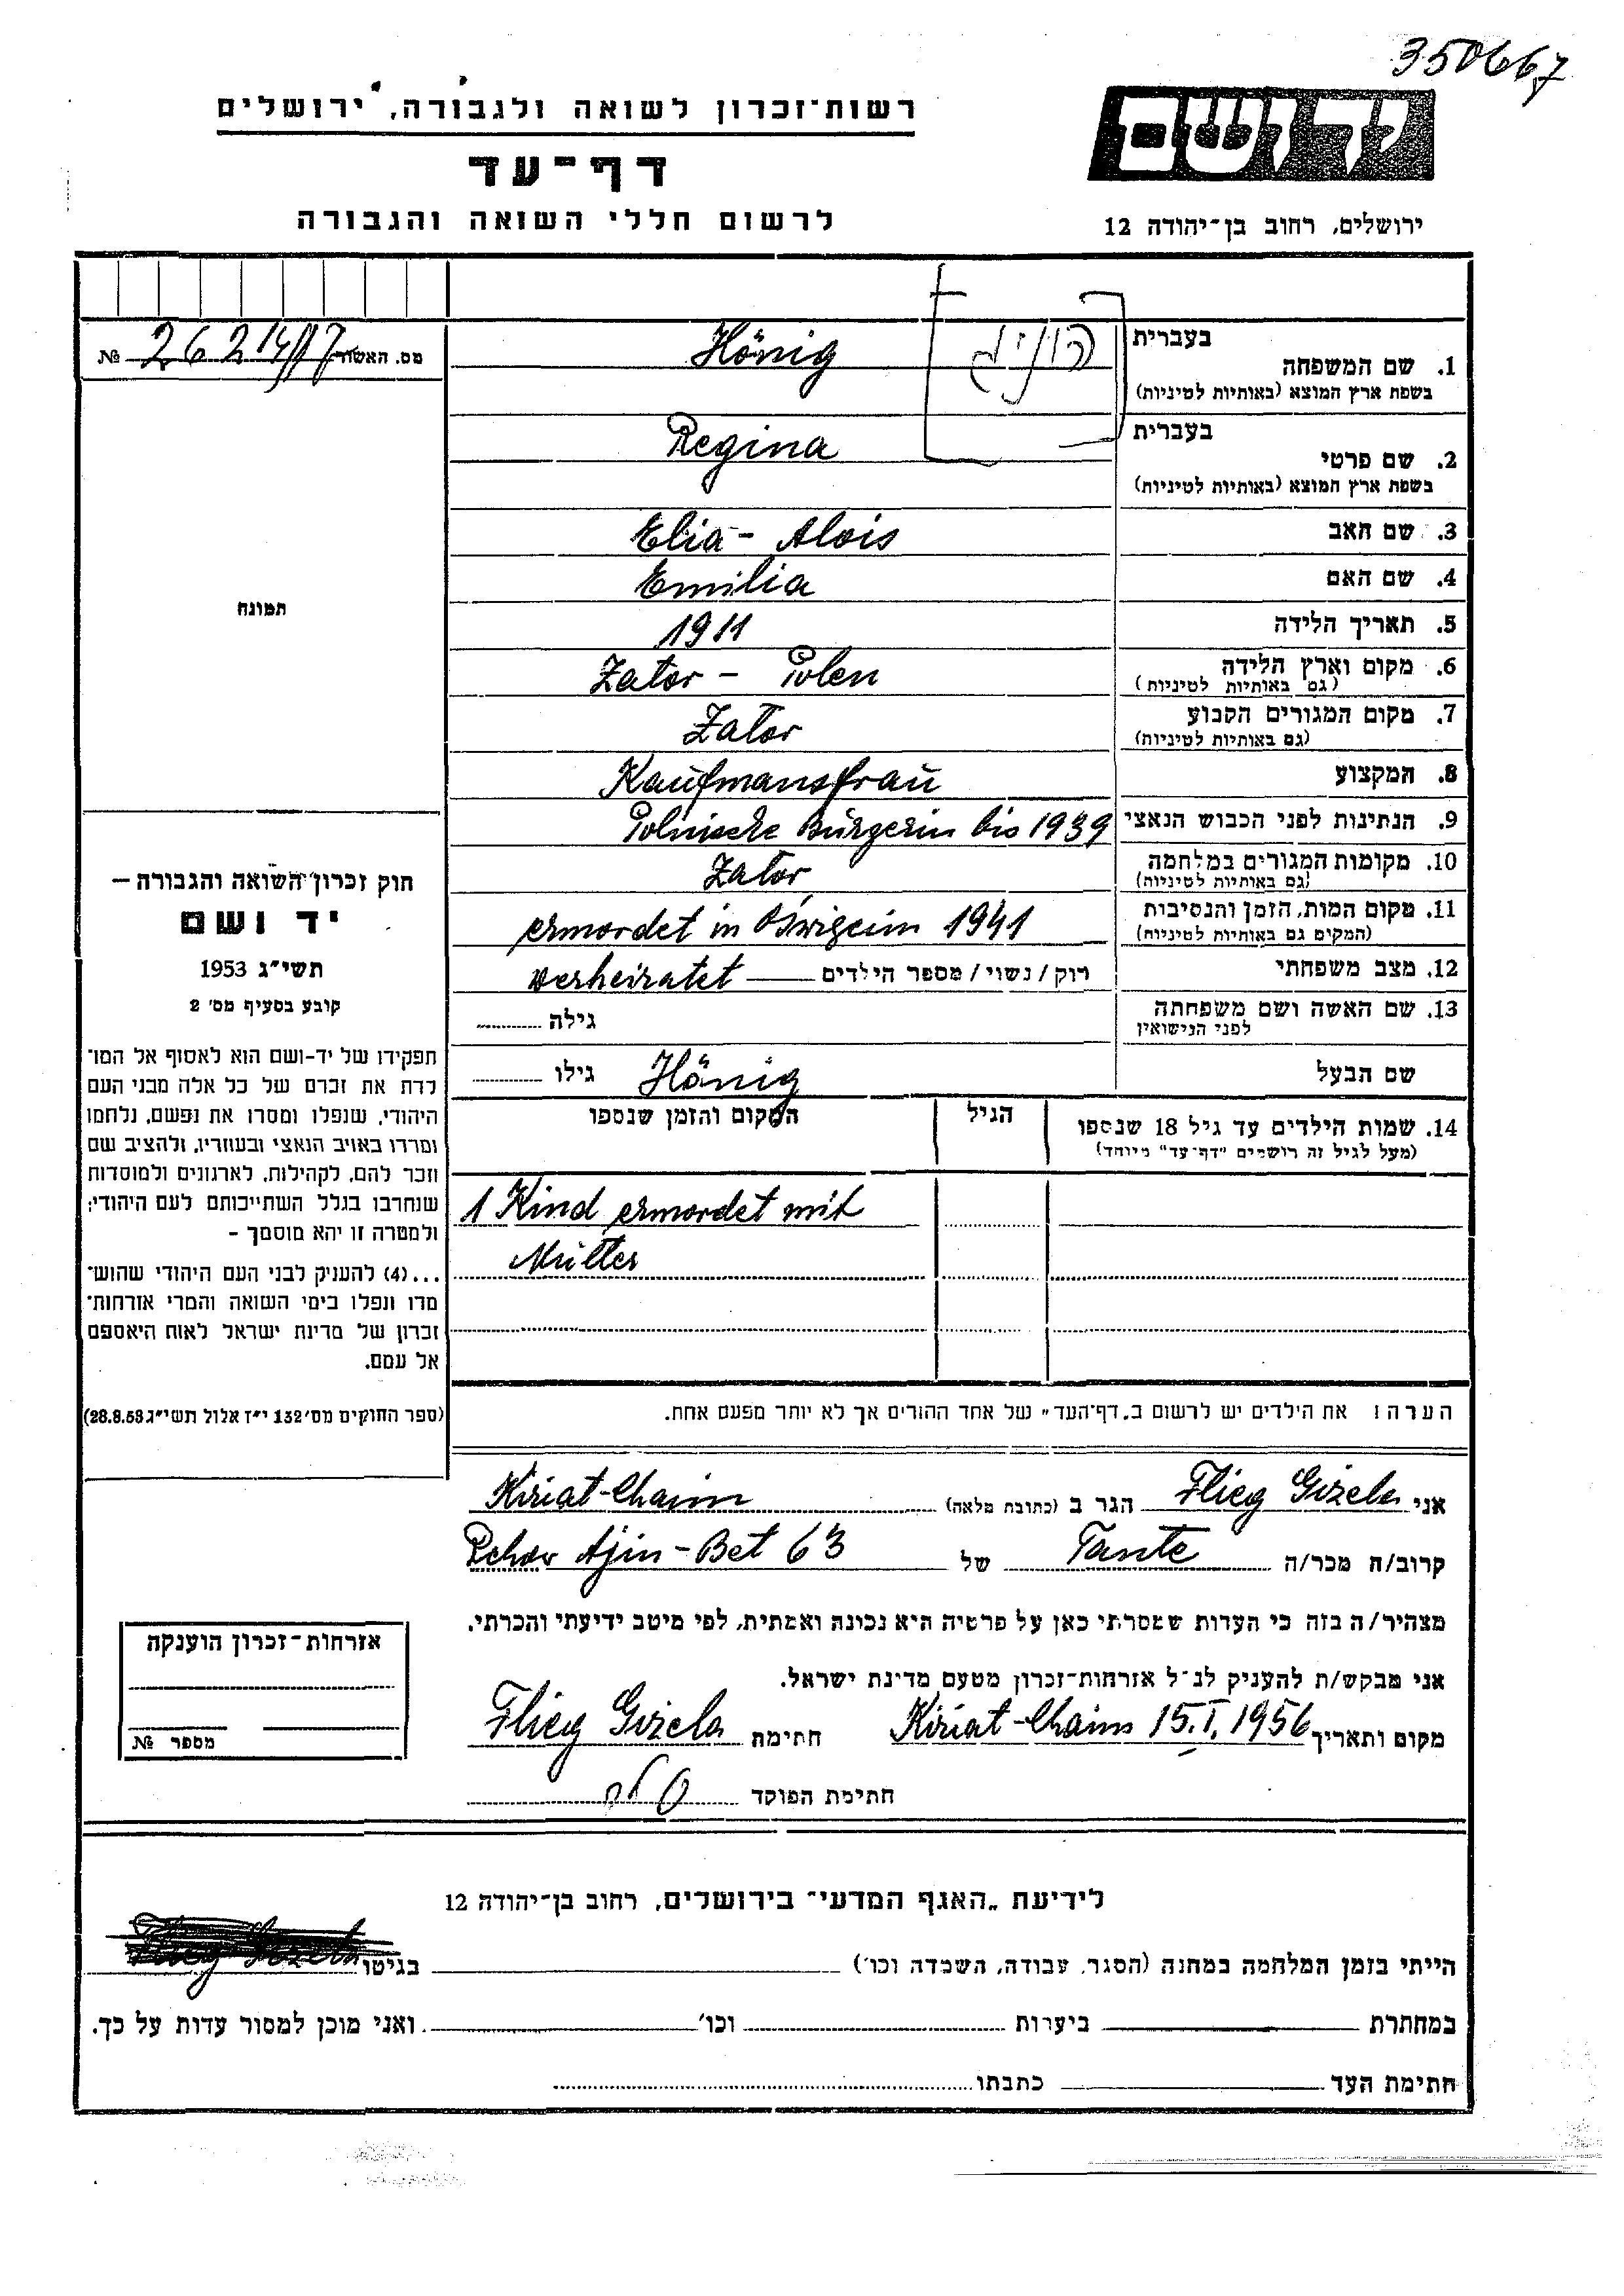 350667
רשות־זכרון לשואה ולגבורה, ירושלים
יד ושם
דף־עד
לרשום חללי השואה והגבורה
ירושלים, רחוב בן־יהודה 12
מס. האשור № 26214/17
בעברית
הוניג
1. שם המשפחה Hönig
בשפת ארץ המוצא (באותיות לטיניות)
בעברית
2. שם פרטי Regina
בשפת ארץ המוצא (באותיות לטיניות)
3. שם האב Elia - Alois
4. שם האם Emilia
5. תאריך הלידה 1911
6. מקום וארץ הלידה Zator - Polen
(גם באותיות לטיניות)
7. מקום המגורים הקבוע Zator
(גם באותיות לטיניות)
8. המקצוע Kaufmansfrau
9. הנתינות לפני הכבוש הנאצי Polnische Bürgerin bis 1939
10. מקומות המגורים במלחמה Zator
(גם באותיות לטיניות)
11. מקום המות, הזמן והנסיבות ermordet in Óswigeim 1941
(המקום גם באותיות לטיניות)
12. מצב משפחתי רוק / נשוי / מספר הילדים verheiratet
13. שם האשה ושם משפחתה גילה
לפני הנישואין
שם הבעל Hönig גילו
14. שמות הילדים עד גיל 18 שנספו הגיל המקום והזמן שנספו
(מעל לגיל זה רושמים "דף־עד" מיוחד)
1 Kind ermordet mit
Mutter
הערה: את הילדים יש לרשום ב„דף־העד" של אחד ההורים אך לא יותר מפעם אחת.
תמונה
חוק זכרון השואה והגבורה —
יד ושם
תשי"ג 1953
קובע בסעיף מס' 2
תפקידו של יד-ושם הוא לאסוף אל המו־
לדת את זכרם של כל אלה מבני העם
היהודי, שנפלו ומסרו את נפשם, נלחמו
ומרדו באויב הנאצי ובעוזריו, ולהציב שם
וזכר להם, לקהילות, לארגונים ולמוסדות
שנחרבו בגלל השתייכותם לעם היהודי;
ולמטרה זו יהא מוסמך -
...(4) להעניק לבני העם היהודי שהוש־
מדו ונפלו בימי השואה והמרי אזרחות־
זכרון של מדינת ישראל לאות היאספם
אל עמם.
(ספר החוקים מס' 132 י"ז אלול תשי"ג 28.8.53)
אני Flieg Gizela הגר ב (כתובת מלאה) Kiriat-Chaim
קרוב/ה מכר/ה Tante של Rehov Ajin-Bet 63
מצהיר/ה בזה כי העדות שמסרתי כאן על פרטיה היא נכונה ואמתית, לפי מיטב ידיעתי והכרתי.
אני מבקש/ת להעניק לנ"ל אזרחות־זכרון מטעם מדינת ישראל.
מקום ותאריך Kiriat-Chaim 15.I.1956 חתימת Flieg Gizela
חתימת הפוקד
אזרחות־זכרון הוענקה
מספר №
לידיעת „האגף המדעי" בירושלים, רחוב בן־יהודה 12
הייתי בזמן המלחמה במחנה (הסגר, עבודה, השמדה וכו') בגיטו
במחתרת ביערות וכו' ואני מוכן למסור עדות על כך.
חתימת העד כתבתו